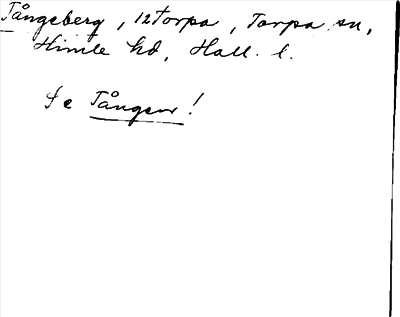 Tångeberg, 12 Torpa, Torpa sn,
Himle hd, Hall. l.
Se Tången!